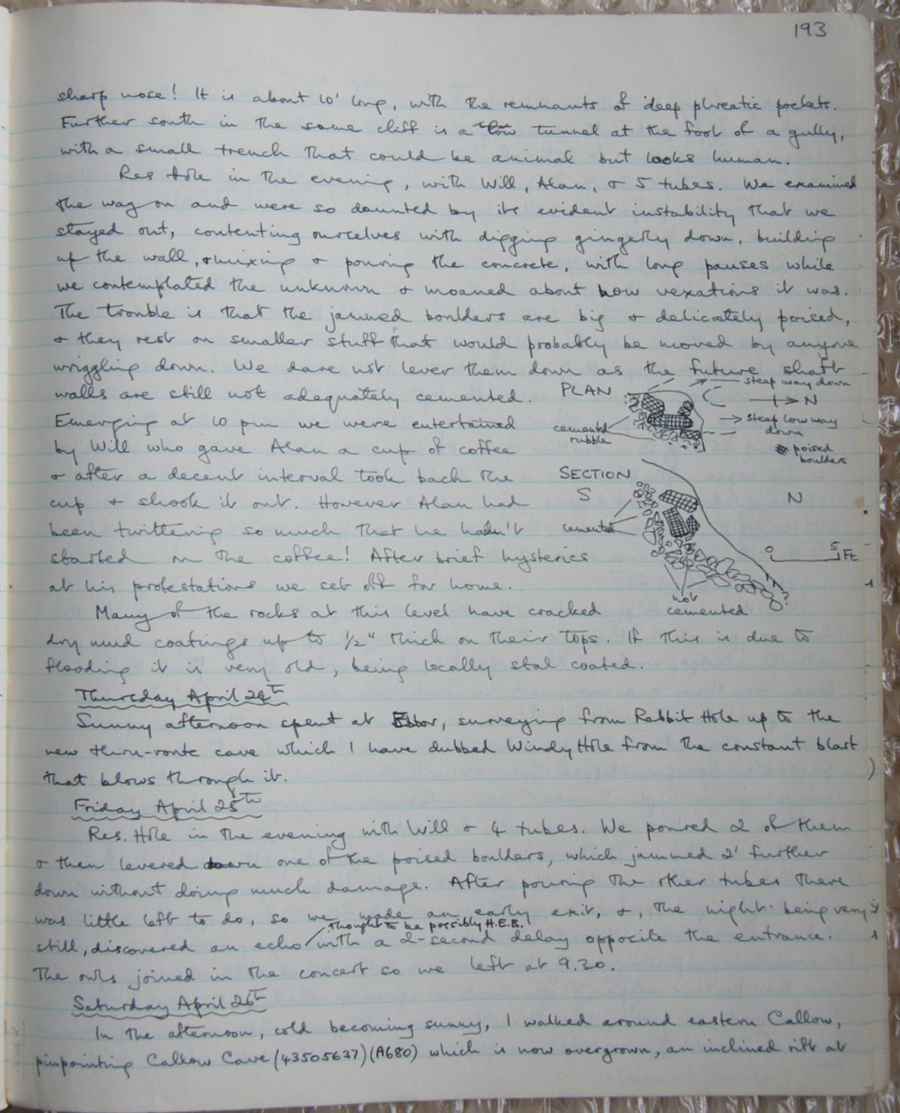 193
sharp nose! It is about 10' long, with the remnants of deep phreatic pockets.
Further south in the same cliff is a low tunnel at the foot of a gully,
with a small trench that could be animal but looks human.
Res Hole in the evening, with Will, Alan, & 5 tubes. We examined
the way on and were so daunted by its evident instability that we
stayed out, contenting ourselves with digging gingerly down, building
up the wall, & mixing & pouring the concrete, with long pauses while
we contemplated the unknown & moaned about how vexatious it was.
The trouble is that the jammed boulders are big & delicately poised,
& they rest on smaller stuff that would probably be moved by anyone
wriggling down. We dare not lever them down as the future shaft
walls are still not adequately cemented.
Emerging at 10 pm we were entertained
by Will who gave Alan a cup of coffee
& after a decent interval took back the
cup & shook it out. However Alan had
been twittering so much that he hadn't
started on the coffee! After brief hysterics
at his protestations we set off for home.
PLAN
steep way down
N
steep low way
down
cemented
rubble
poised
boulders
SECTION
S
N
cemented
0 5 Ft
?
not
cemented
Many of the rocks at this level have cracked
dry mud coatings up to 1/2" thick on their tops. If this is due to
flooding it is very old, being locally stal coated.
Thursday April 24th
Sunny afternoon spent at Ebbor, surveying from Rabbit Hole up to the
new thro-route cave which I have dubbed Windy Hole from the constant blast
that blows through it.
Friday April 25th
Res. Hole in the evening with Will & 4 tubes. We poured 2 of them
& then levered down one of the poised boulders, which jammed 2' further
down without doing much damage. After pouring the other tubes there
was little left to do, so we made an early exit, &, the night being very
thought to be possibly H.E.B.
still, discovered an echo with a 2-second delay opposite the entrance.
The owls joined in the concert so we left at 9.30.
Saturday April 26th
In the afternoon, cold becoming sunny, I walked around eastern Callow,
pinpointing Callow Cave (43505637) (A680) which is now overgrown, an inclined rift at